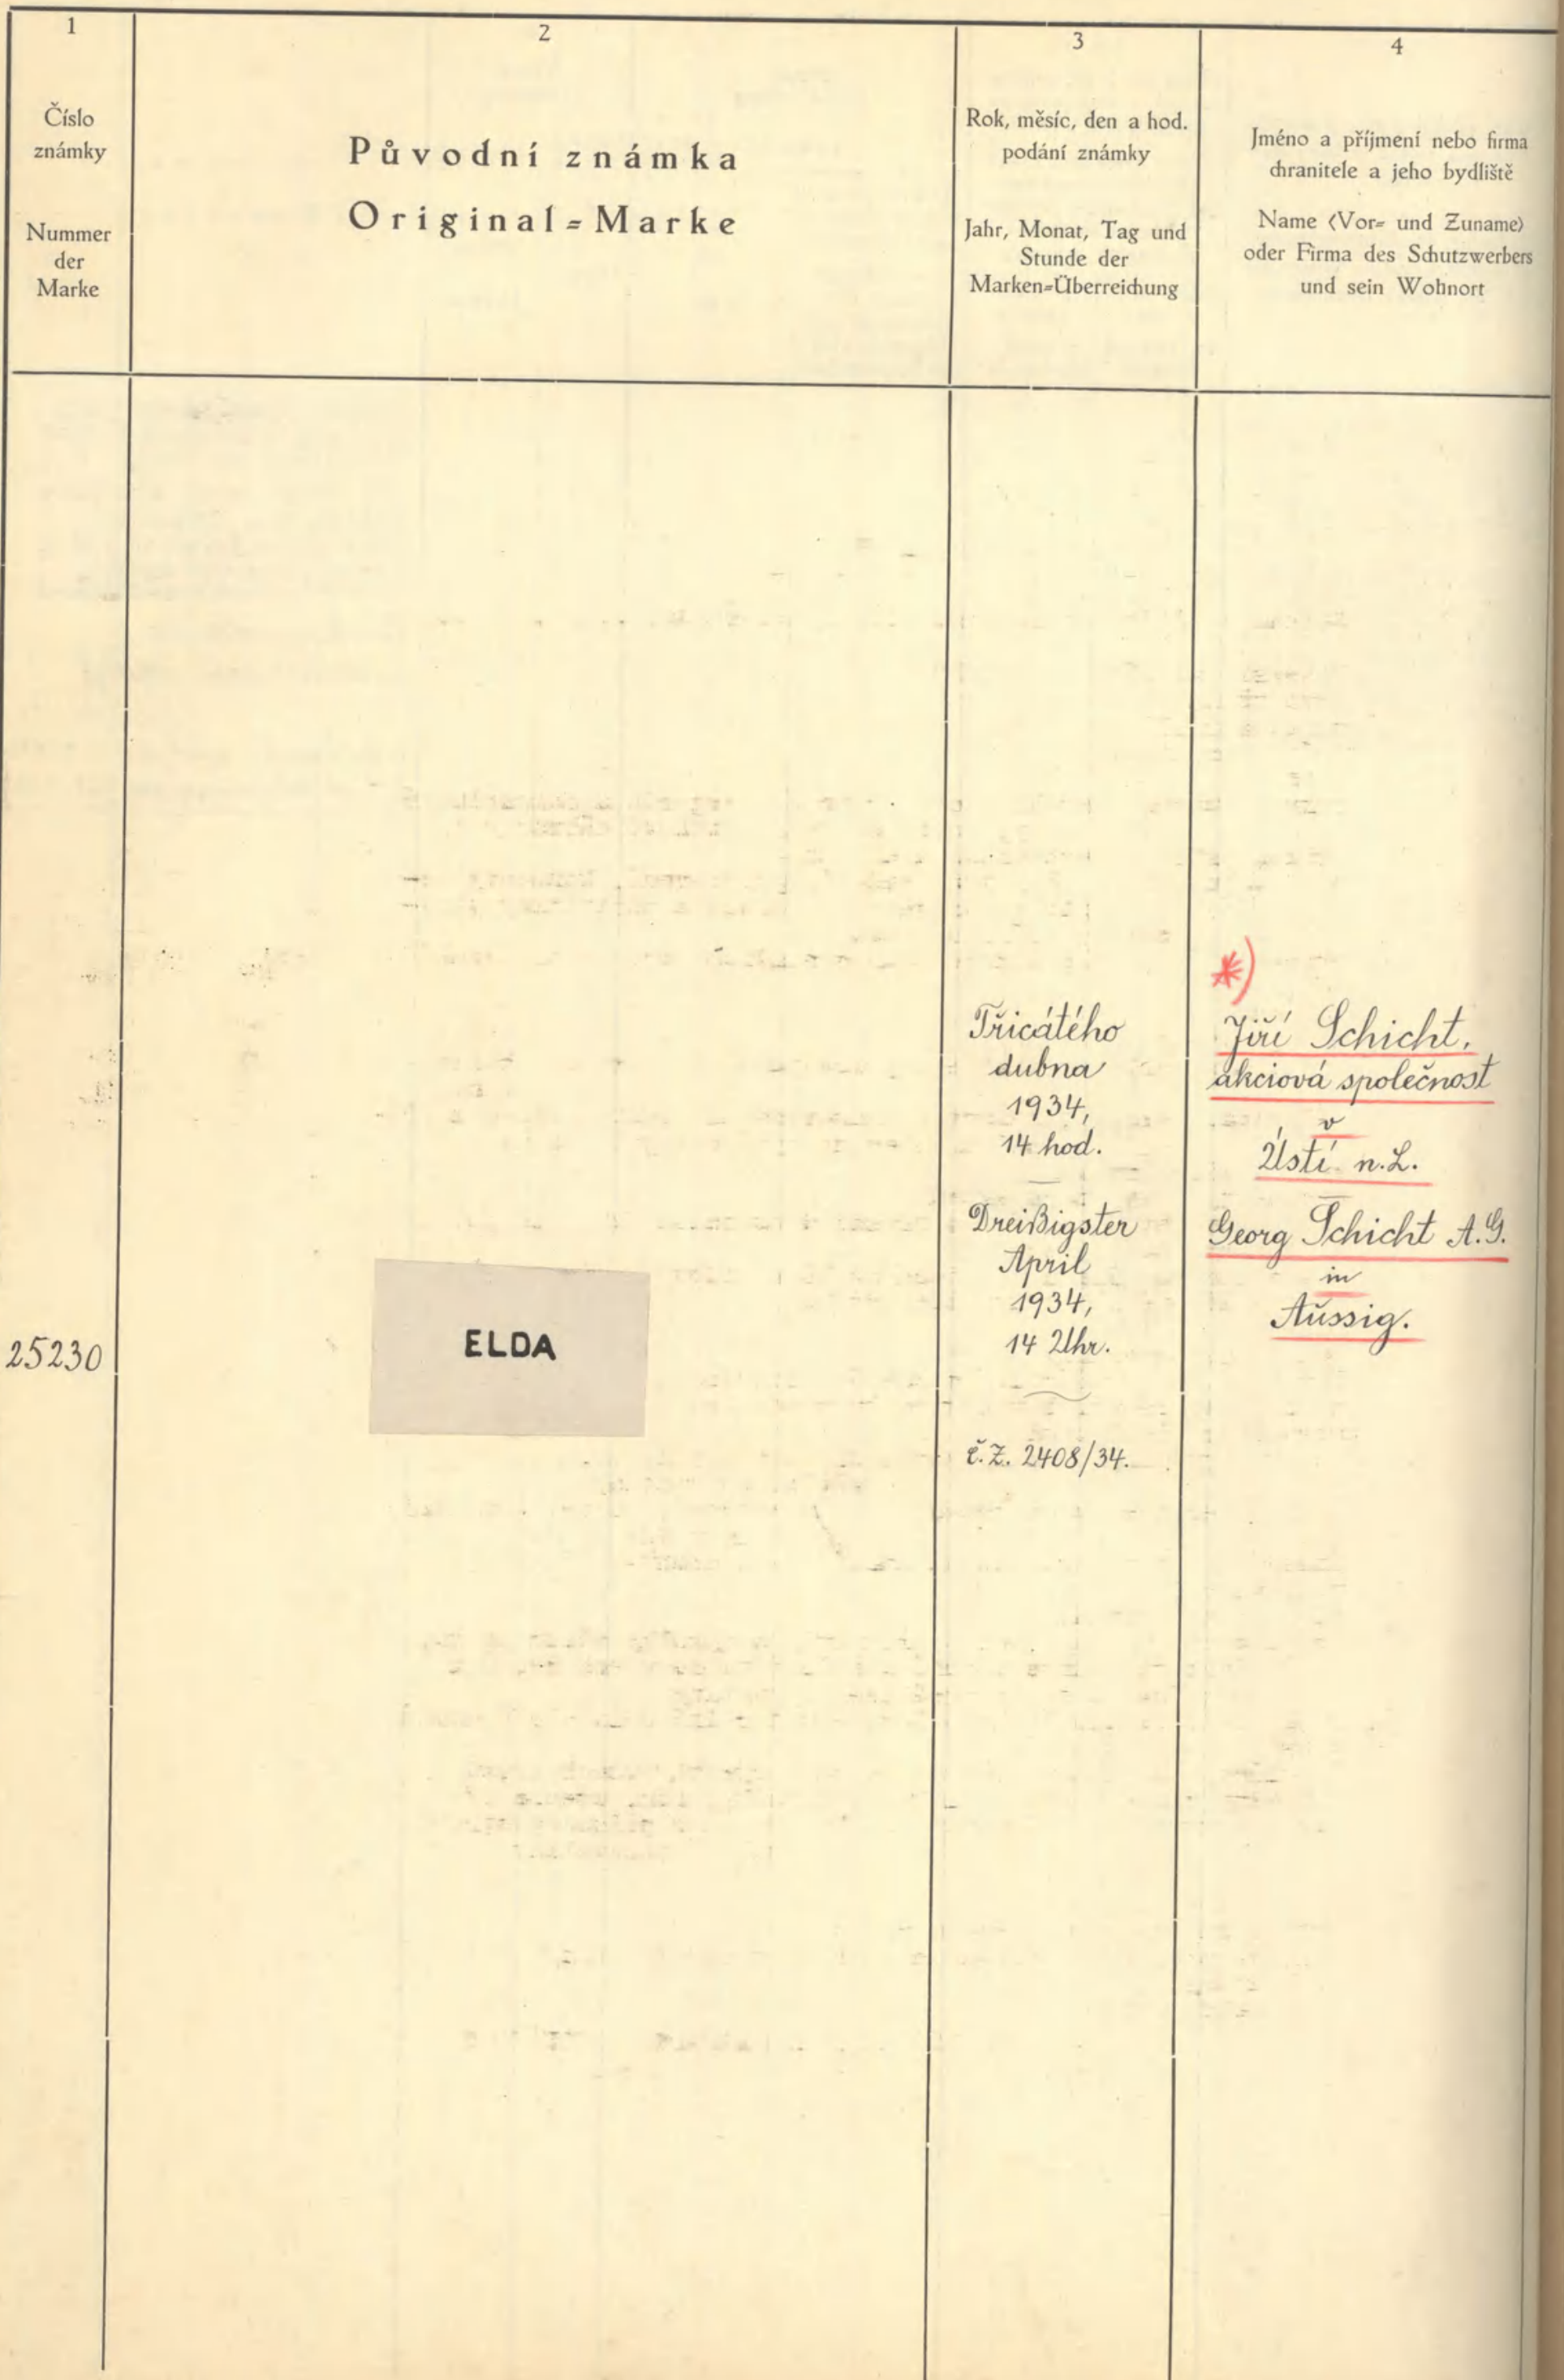 1
Číslo
známky
Nummer
der
Marke
2
Původní známka
Original=Marke
3
Rok, měsíc, den a hod.
podání známky
Jahr, Monat, Tag und
Stunde der
Marken=Überreichung
4
Jméno a příjmení nebo firma
chranitele a jeho bydliště
Name (Vor= und Zuname)
oder Firma des Schutzwerbers
und sein Wohnort
25230
ELDA
Třicátého
dubna
1934,
14 hod.
Dreißigster
April
1934,
14 Uhr.
č.ž. 2408/34.
*)
Jiří Schicht,
akciová společnost
v
Ústí n.L.
Georg Schicht A.G.
in
Aussig.